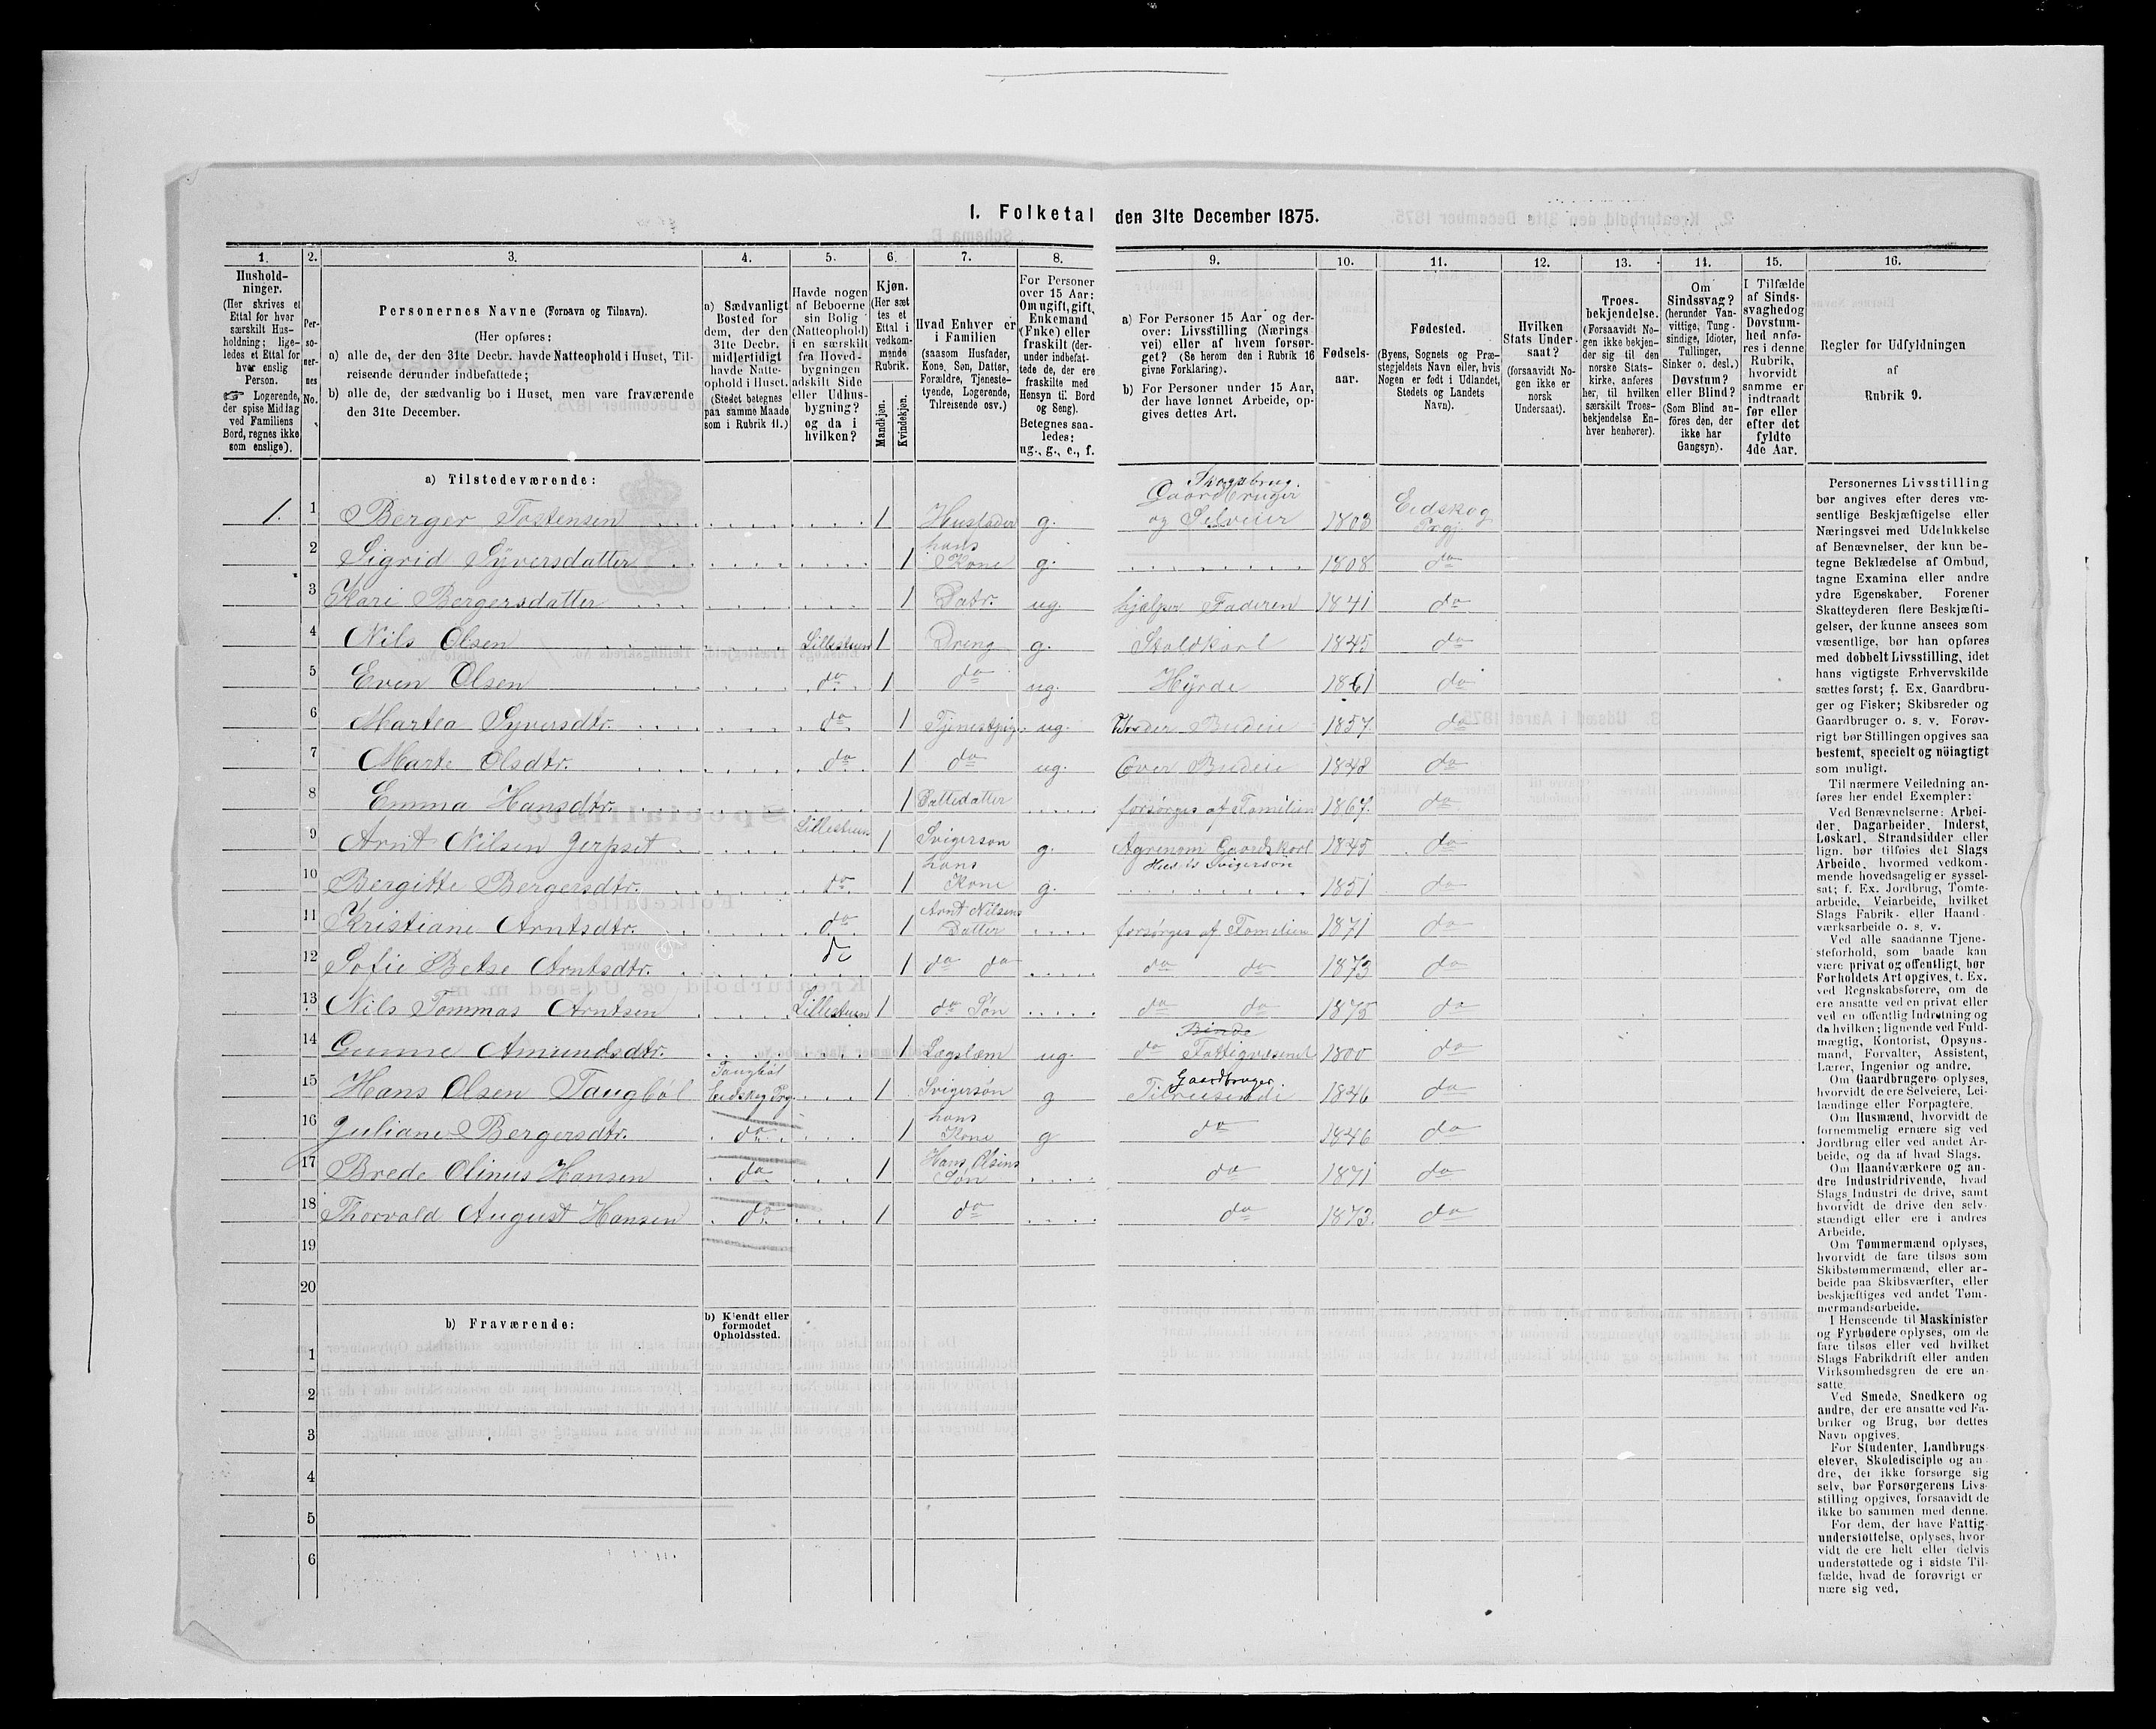 I. Folketal den 31te December 1875.
1. 2. 3. 4. 5. 6. 7. 8. 9. 10. 11. 12. 13. 14. 15. 16.
Hushold-
ninger.
(Her skrives et
Ettal for hver
særskilt Hus-
holdning; lige-
ledes et Ettal for
hver enslig
Person.
☞ Logerende,
der spise Middag
ved Familiens
Bord, regnes ikke
som enslige).
Per-
so-
ner-
nes
No.
Personernes Navne (Fornavn og Tilnavn).
(Her opføres:
a) alle de, der den 31te Decbr. havde Natteophold i Huset, Til-
reisende derunder indbefattede;
b) alle de, der sædvanlig bo i Huset, men vare fraværende
den 31te December.
a) Sædvanligt
Bosted for
dem, der den
31te Decbr.
midlertidigt
havde Natte-
ophold i Huset.
(Stedet betegnes
paa samme Maade
som i Rubrik 11.)
Havde nogen
af Beboerne
sin Bolig
(Natteophold)
i en særskilt
fra Hoved-
bygningen
adskilt Side
eller Udhus-
bygning?
og da i
hvilken?
Kjøn.
(Her sæt
tes et
Ettal i
vedkom-
mende
Rubrik.
Mandkjøn.
Kvindekjøn.
Hvad Enhver er
i Familien
(saasom Husfader,
Kone, Søn, Datter,
Forældre, Tjeneste-
tyende, Logerende,
Tilreisende osv.)
For Personer
over 15 Aar:
Om ugift, gift,
Enkemand
(Enke) eller
fraskilt (der-
under indbefat-
tede de, der ere
fraskilte med
Hensyn til Bord
og Seng).
Betegnes saa-
ledes:
ug., g., e., f.
a) For Personer 15 Aar og der-
over: Livsstilling (Nærings
vei) eller af hvem forsør-
get? (Se herom den i Rubrik 16
givne Forklaring).
b) For Personer under 15 Aar,
der have lønnet Arbeide, op-
gives dettes Art.
Fødsels-
aar.
Fødested.
(Byens, Sognets og Præ-
stegjeldets Navn eller, hvis
Nogen er født i Udlandet,
Stedets og Landets
Navn).
Hvilken
Stats Under-
saat?
(forsaavidt No-
gen ikke er
norsk
Undersaat).
Troes-
bekjendelse.
(Forsaavidt No-
gen ikke bekjen-
der sig til den
norske Stats-
kirke, anføres
her, til hvilken
særskilt Troes-
bekjendelse En-
hver henhører).
Om
Sindssvag?
(herunder Van-
vittige, Tung-
sindige, Idioter,
Tullinger,
Sinker o. desl.)
Døvstum?
eller Blind?
(Som Blind an-
føres den, der
ikke har
Gangsyn).
I Tilfælde
af Sinds-
svaghed og
Døvstum-
hed anfø-
res i denne
Rubrik,
hvorvidt
samme er
indtraadt
før eller
efter det
fyldte
4de Aar.
Regler for Udfyldningen
af
Rubrik 9.
a) Tilstedeværende:
Skogsbrug.
1. 1 Berger Tostensen 1 Husfader g. Gaardbruger og Selveier 1803 Eidskog Prgj
2 Sigrid Syversdatter 1 hans Kone g. 1808 do
3 Kari Bergersdatter 1 Datr. ug. hjelper Faderen 1841 do
4 Nils Olsen Lillestuen 1 Dreng g. Staldkarl 1845 do
5 Even Olsen do 1 do ug. Hyrde 1861 do
6 Martea Syversdtr. do 1 Tjenestpig. ug. Under Budeie 1857. do
7 Marte Olsdtr. do 1 do ug. Over Budeie 1848 do
8 Emma Hansdtr. 1 Datterdatter forsørges af Familien 1867. do
9 Arnt Nilsen Gerpset Lillestuen 1 Svigerson g. Agronom Gaardskarl 1845 do
Svigersøn
10 Bergitte Bergersdtr. do 1 hans Kone g. 1851 do
11 Kristiane Arntsdtr. do 1 Arnt Nilsens Datter forsørges af Familien 1871 do
12 Sofie Betse Arntsdtr. do 1 do do do do 1873 do
13 Nils Tommas Arntsen Lillestuen 1 do Søn do do 1875 do
14 Gunne Amundsdtr. 1 Lægslem ug. do Fattigvæsenet 1800 do
15 Hans Olsen Taugbøl Taugbøl Eidskog Prg 1 Svigersøn g Gaardbruger. Tilreisende 1846 do
16 Juliane Bergersdtr. do 1 hans Kone g do 1846 do
17 Brede Olinus Hansen do 1 Hans Olsens Søn do 1871 do
18 Thorvald August Hansen do 1 do do 1873. do
19
20
b) Fraværende:
b) Kjendt eller
formodet
Opholdssted.
1
2
3
4
5
6
Personernes Livsstilling
bør angives efter deres væ-
sentlige Beskjæftigelse eller
Næringsvei med Udelukkelse
af Benævnelser, der kun be-
tegne Beklædelse af Ombud,
tagne Examina eller andre
ydre Egenskaber. Forener
Skatteyderen flere Beskjæfti-
gelser, der kunne ansees som
væsentlige, bør han opføres
med dobbelt Livsstilling, idet
hans vigtigste Erhvervskilde
sættes først; f. Ex. Gaardbru-
ger og Fisker; Skibsreder og
Gaardbruger o. s. v. Forøv-
rigt bør Stillingen opgives saa
bestemt, specielt og nöiagtigt
som muligt.
Til nærmere Veiledning an-
føres her endel Exempler:
Ved Benævnelserne: Arbei-
der, Dagarbeider, Inderst,
Løskarl, Strandsidder eller
lign. bør tilføies det Slags
Arbeide, hvormed vedkom-
mende hovedsagelig er syssel-
sat; f. Ex. Jordbrug, Tomte-
arbeide, Veiarbeide, hvilket
Slags Fabrik- eller Haand-
værksarbeide o. s. v.
Ved alle saadanne Tjene-
steforhold, som baade kan
være privat og offentligt, bør
Forholdets Art opgives, f. Ex.
ved Regnskabsførere, om de
ere ansatte ved en privat eller
ved en offentlig Indretning og
da hvilken; lignende ved Fuld-
mægtig, Kontorist, Opsyns-
mand, Forvalter, Assistent,
Lærer, Ingeniør og andre.
Om Gaardbrugere oplyses,
hvorvidt de ere Selveiere, Lei-
lændinge eller Forpagtere.
Om Husmænd, hvorvidt de
fornemmelig ernære sig ved
Jordbrug eller ved andet Ar-
beide, og da af hvad Slags.
Om Haandværkere og an-
dre Industridrivende, hvad
Slags Industri de drive, samt
hvorvidt de drive den selv-
stændigt eller ere i andres
Arbeide.
Om Tømmermænd oplyses,
hvorvidt de fare tilsøs som
Skibstømmermænd, eller ar-
beide paa Skibsværfter, eller
beskjæftiges ved andet Tøm-
mermandsarbeide.
I Henseende til Maskinister
og Fyrbødere oplyses, om de
fare tilsøs eller ved hvilket
Slags Fabrikdrift eller anden
Virksomhedsgren de ere an-
satte.
Ved Smede, Snedkere og
andre, der ere ansatte ved Fa-
briker og Brug, bør dettes
Navn opgives.
For Studenter, Landbrugs
elever, Skoledisciple og an-
dre, der ikke forsørge sig
selv, bør Forsørgerens Livs-
stilling opgives, forsaavidt de
ikke bo sammen med denne.
For dem, der have Fattig-
understøttelse, oplyses, hvor-
vidt de ere helt eller delvis
understøttede og i sidste Til-
fælde, hvad de forøvrigt er
nære sig ved.